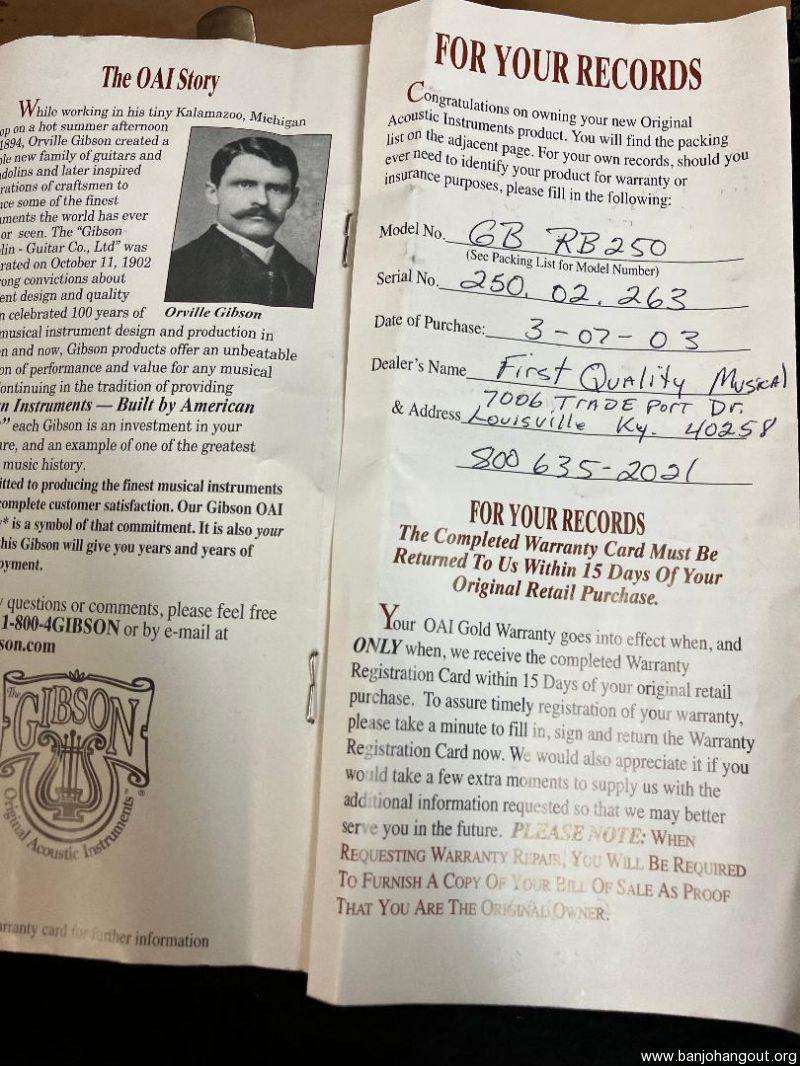 The OAI Story
While working in his tiny Kalamazoo, Michigan
op on a hot summer afternoon
1894, Orville Gibson created a
le new family of guitars and
dolins and later inspired
rations of craftsmen to
ce some of the finest
uments the world has ever
or seen. The "Gibson
lin - Guitar Co., Ltd" was
rated on October 11, 1902
ong convictions about
ent design and quality
n celebrated 100 years of
Orville Gibson
musical instrument design and production in
n and now, Gibson products offer an unbeatable
on of performance and value for any musical
ontinuing in the tradition of providing
n Instruments — Built by American
" each Gibson is an investment in your
re, and an example of one of the greatest
music history.
itted to producing the finest musical instruments
complete customer satisfaction. Our Gibson OAI
* is a symbol of that commitment. It is also your
his Gibson will give you years and years of
oyment.
y questions or comments, please feel free
1-800-4GIBSON or by e-mail at
son.com
The
GIBSON
Original Acoustic Instruments™
®
arranty card for further information
FOR YOUR RECORDS
Congratulations on owning your new Original
Acoustic Instruments product. You will find the packing
list on the adjacent page. For your own records, should you
ever need to identify your product for warranty or
insurance purposes, please fill in the following:
Model No. GB RB250
(See Packing List for Model Number)
Serial No. 250. 02. 263
Date of Purchase: 3-07-03
Dealer's Name First Quality Musical
7006 Trade Port Dr.
& Address Louisville Ky. 40258
800 635-2021
FOR YOUR RECORDS
The Completed Warranty Card Must Be
Returned To Us Within 15 Days Of Your
Original Retail Purchase.
Your OAI Gold Warranty goes into effect when, and
ONLY when, we receive the completed Warranty
Registration Card within 15 Days of your original retail
purchase. To assure timely registration of your warranty,
please take a minute to fill in, sign and return the Warranty
Registration Card now. We would also appreciate it if you
would take a few extra moments to supply us with the
additional information requested so that we may better
serve you in the future. PLEASE NOTE: WHEN
REQUESTING WARRANTY REPAIR, YOU WILL BE REQUIRED
TO FURNISH A COPY OF YOUR BILL OF SALE AS PROOF
THAT YOU ARE THE ORIGINAL OWNER.
www.banjohangout.org